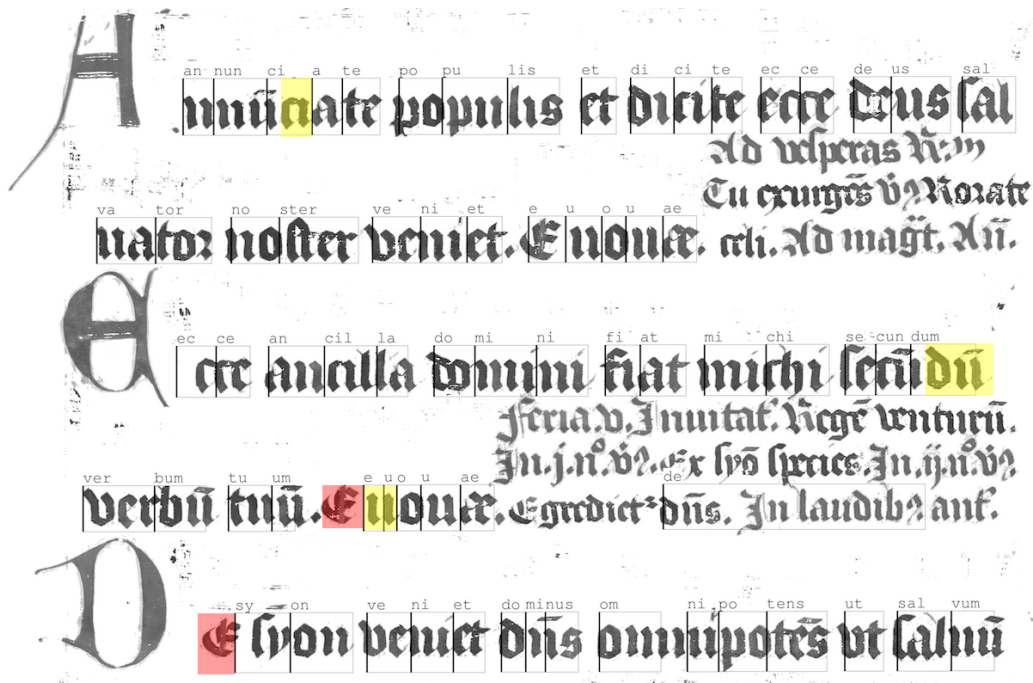 an nun ci a te po pu lis et di ci te ec ce de us sal
A nnūciate populis et dicite ecce deus sal
Ad vesperas
Tu exurgēs v̄ꝯ Rorate
va tor no ster ve ni et e u o u ae
uator noster veniet. Euouae. celi. Ad mag̅t. An̄.
ec ce an cil la do mi ni fi at mi chi se cun dum
E cce ancilla domini fiat michi secūdū
Feria.v. Inuitat̄. Regē venturū.
In.j.n°.v̄ꝯ. Ex syō species. In.ij.n°.v̄ꝯ
ver bum tu um e u o u ae de
verbū tuū. Euouae. Egredietᷣ dn̄s. In laudibꝯ ant̄.
sy on ve ni et do minus om ni po tens ut sal vum
D E syon veniet dn̄s omnipotēs vt saluū